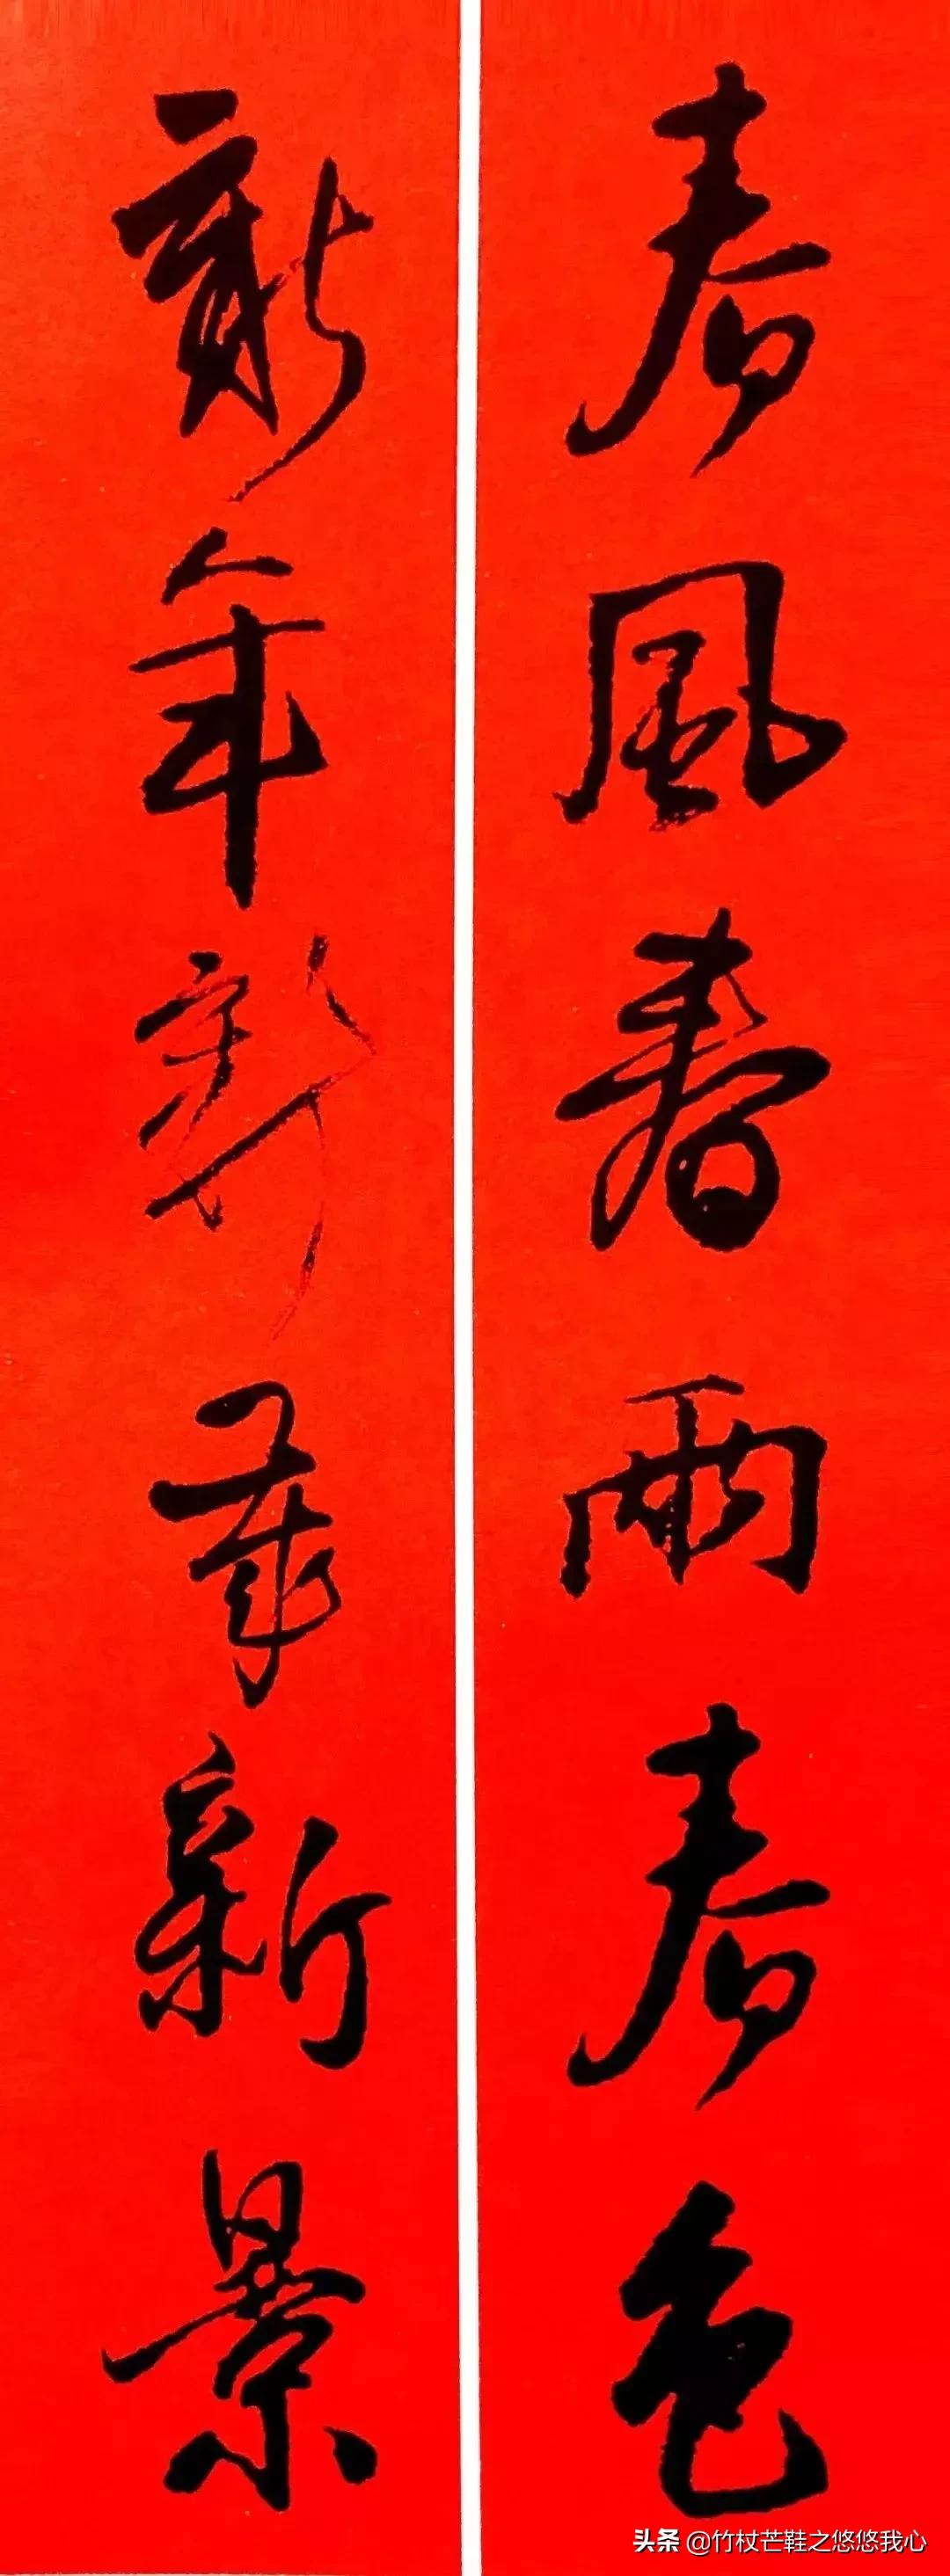 春風春雨春色
新年新歲新景
头条 @竹杖芒鞋之悠悠我心